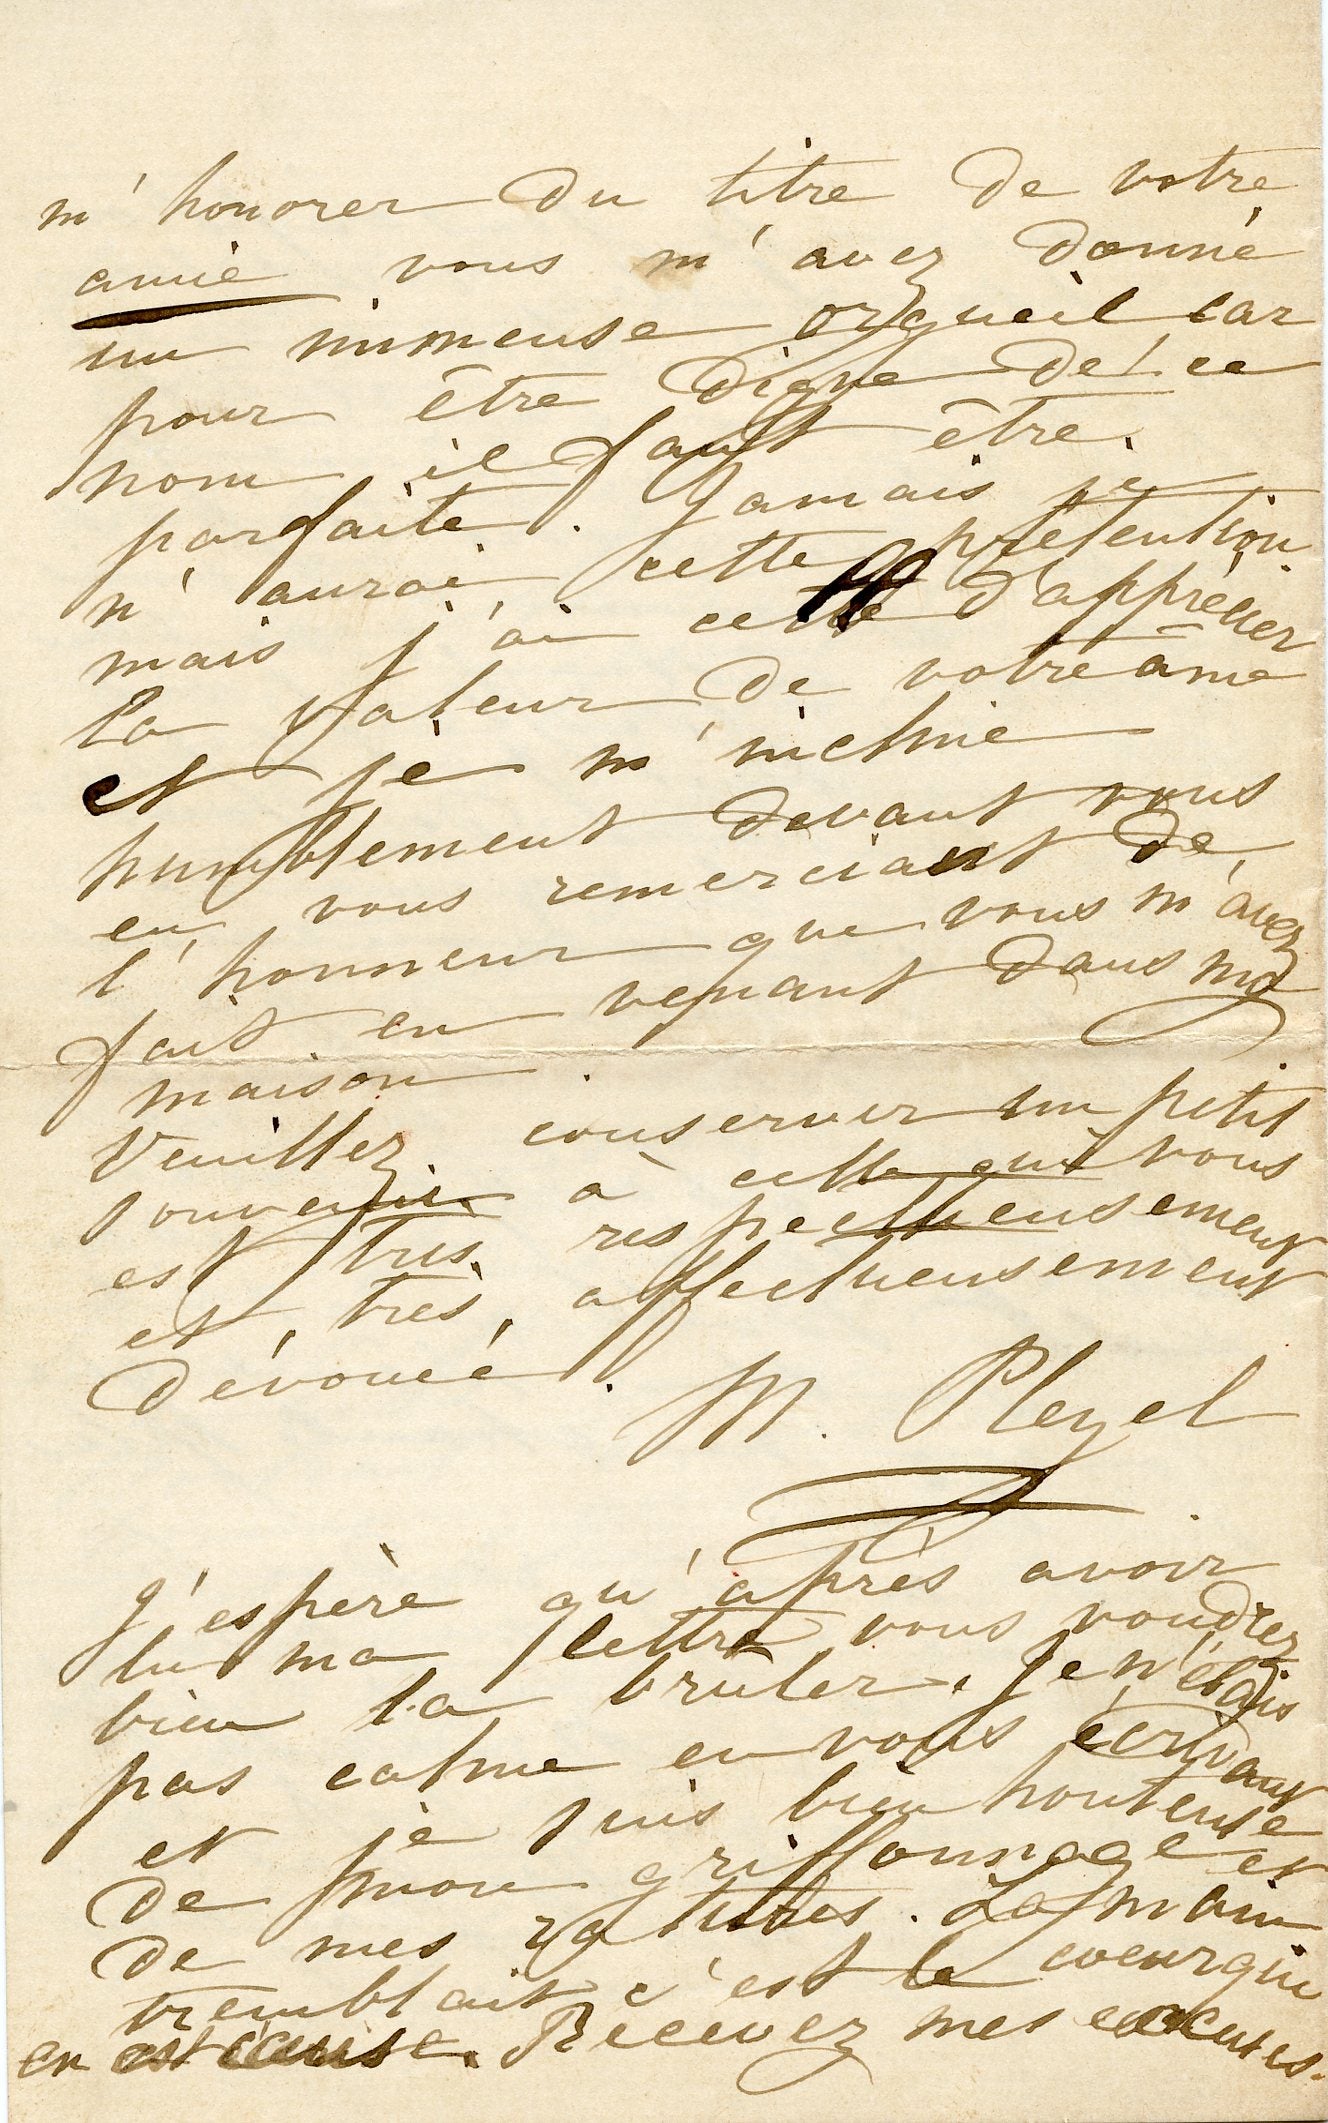 m'honorer du titre de votre
amie vous m'avez donné
un immense orgueil car
pour être digne de ce
nom il faut être
parfaite. Jamais je
n'aurai cette prétention
mais j'ai celle d'apprécier
la valeur de votre âme
et je m'incline
humblement devant vous
en vous remerciant de
l'honneur que vous m'avez
fait en venant dans ma
maison.
Veuillez conserver un petit
souvenir à celle qui vous
est très respectueusement
et très affectueusement
dévouée.
M. Pleyel
J'espère qu'après avoir
lu ma lettre vous voudrez
bien la brûler. Je n'étais
pas calme en vous écrivant
et je suis bien honteuse
de mon griffonnage et
de mes ratures. La main
tremblait c'est le cœur qui
en est cause. Recevez mes excuses.